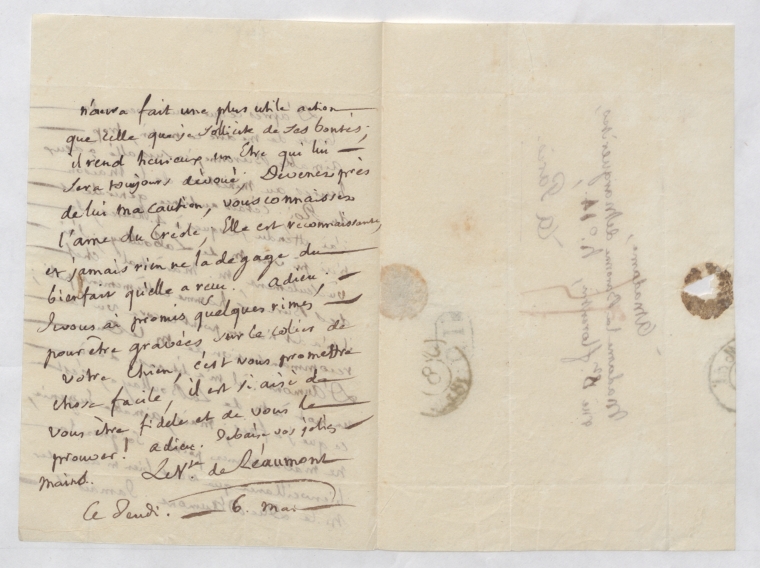 n'aura fait une plus utile action
que celle que je sollicite de ses bontés;
il rend heureux un Etre qui lui
sera toujours dévoué. Devenez près
de lui ma caution, vous connaissez
l'ame du Créole, Elle est reconnaissante,
et jamais rien ne la dégage du
bienfait qu'elle a reçu. adieu.
Je vous ai promis quelques rimes,
pour être gravées sur le colier de
votre chien, c'est vous promettre
chose facile, il est si aisé de
vous être fidele et de vous le
prouver! adieu. Je baise vos jolies
mains. Le Vte de Léaumont
Ce Jeudi. 6. mai
a Madame,
Madame la Baronne de Marguerittes,
rue St. florentin N.º 14
à Paris